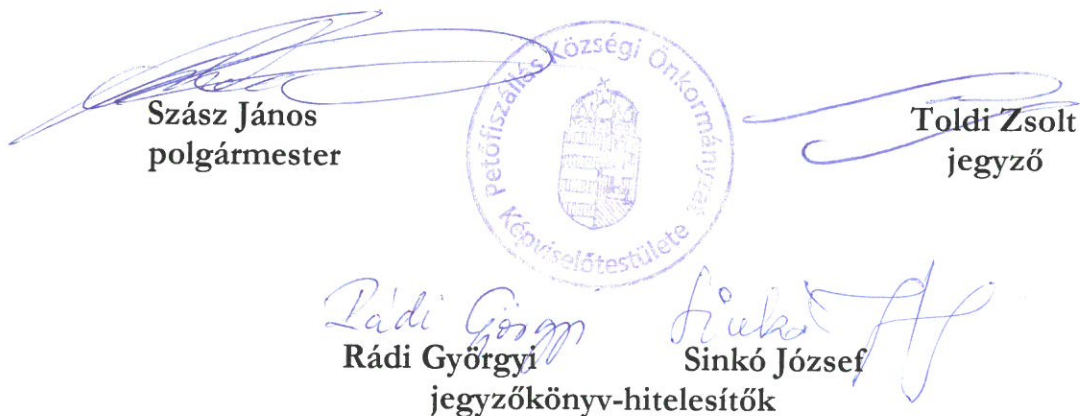 Szász János
polgármester
Petőfiszállás Községi Önkormányzat
Képviselőtestülete
Toldi Zsolt
jegyző
Rádi Györgyi
Sinkó
Rádi Györgyi Sinkó József
jegyzőkönyv-hitelesítők